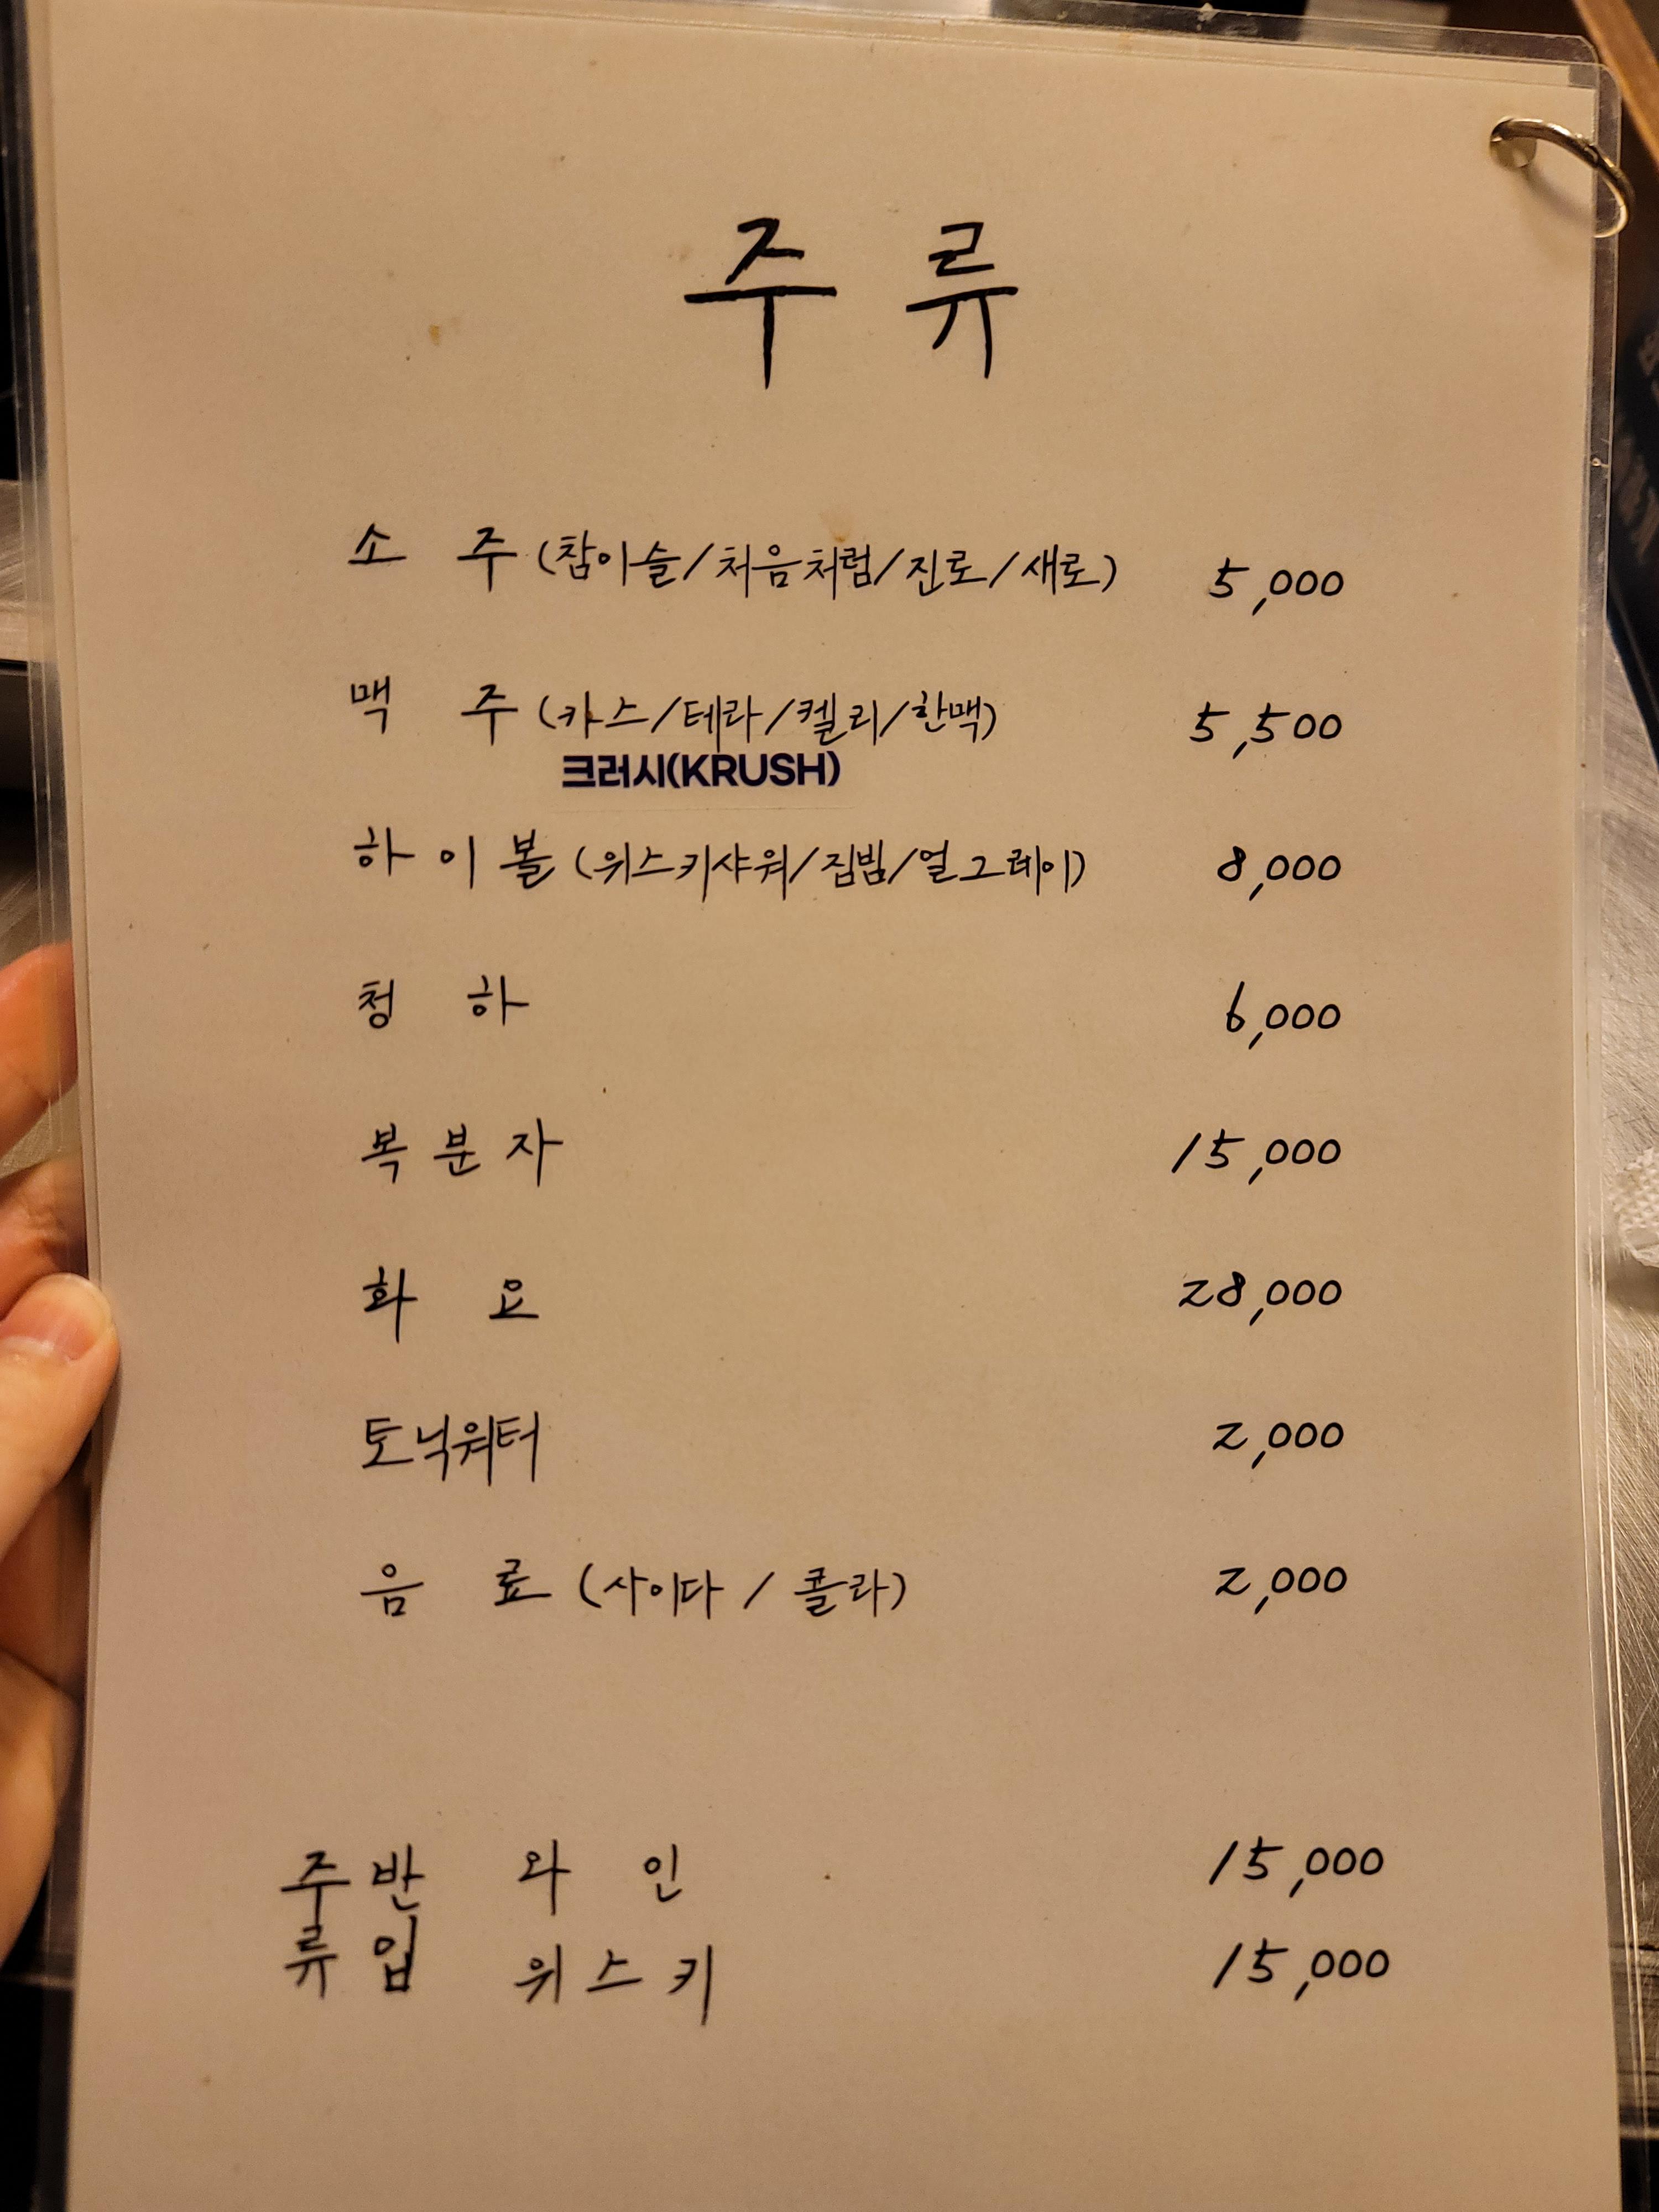 주류
소주(참이슬/처음처럼/진로/새로) 5,000
맥주(카스/테라/켈리/한맥) 5,500
크러시(KRUSH)
하이볼(위스키샤워/짐빔/얼그레이) 8,000
청하 6,000
복분자 15,000
화요 28,000
토닉워터 2,000
음료(사이다/콜라) 2,000
주류 반입 와인 15,000
위스키 15,000